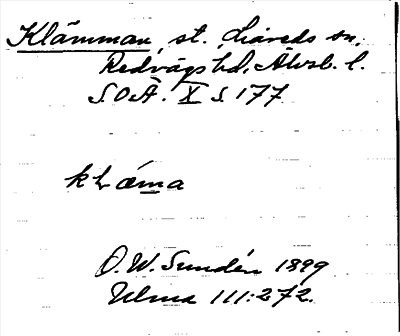 Klämman, st. Liareds sn,
Redvägs hd, Älvsb. l.
S.O.Ä. X s 177
O. W. Sundén 1899
Ulma 111:272.